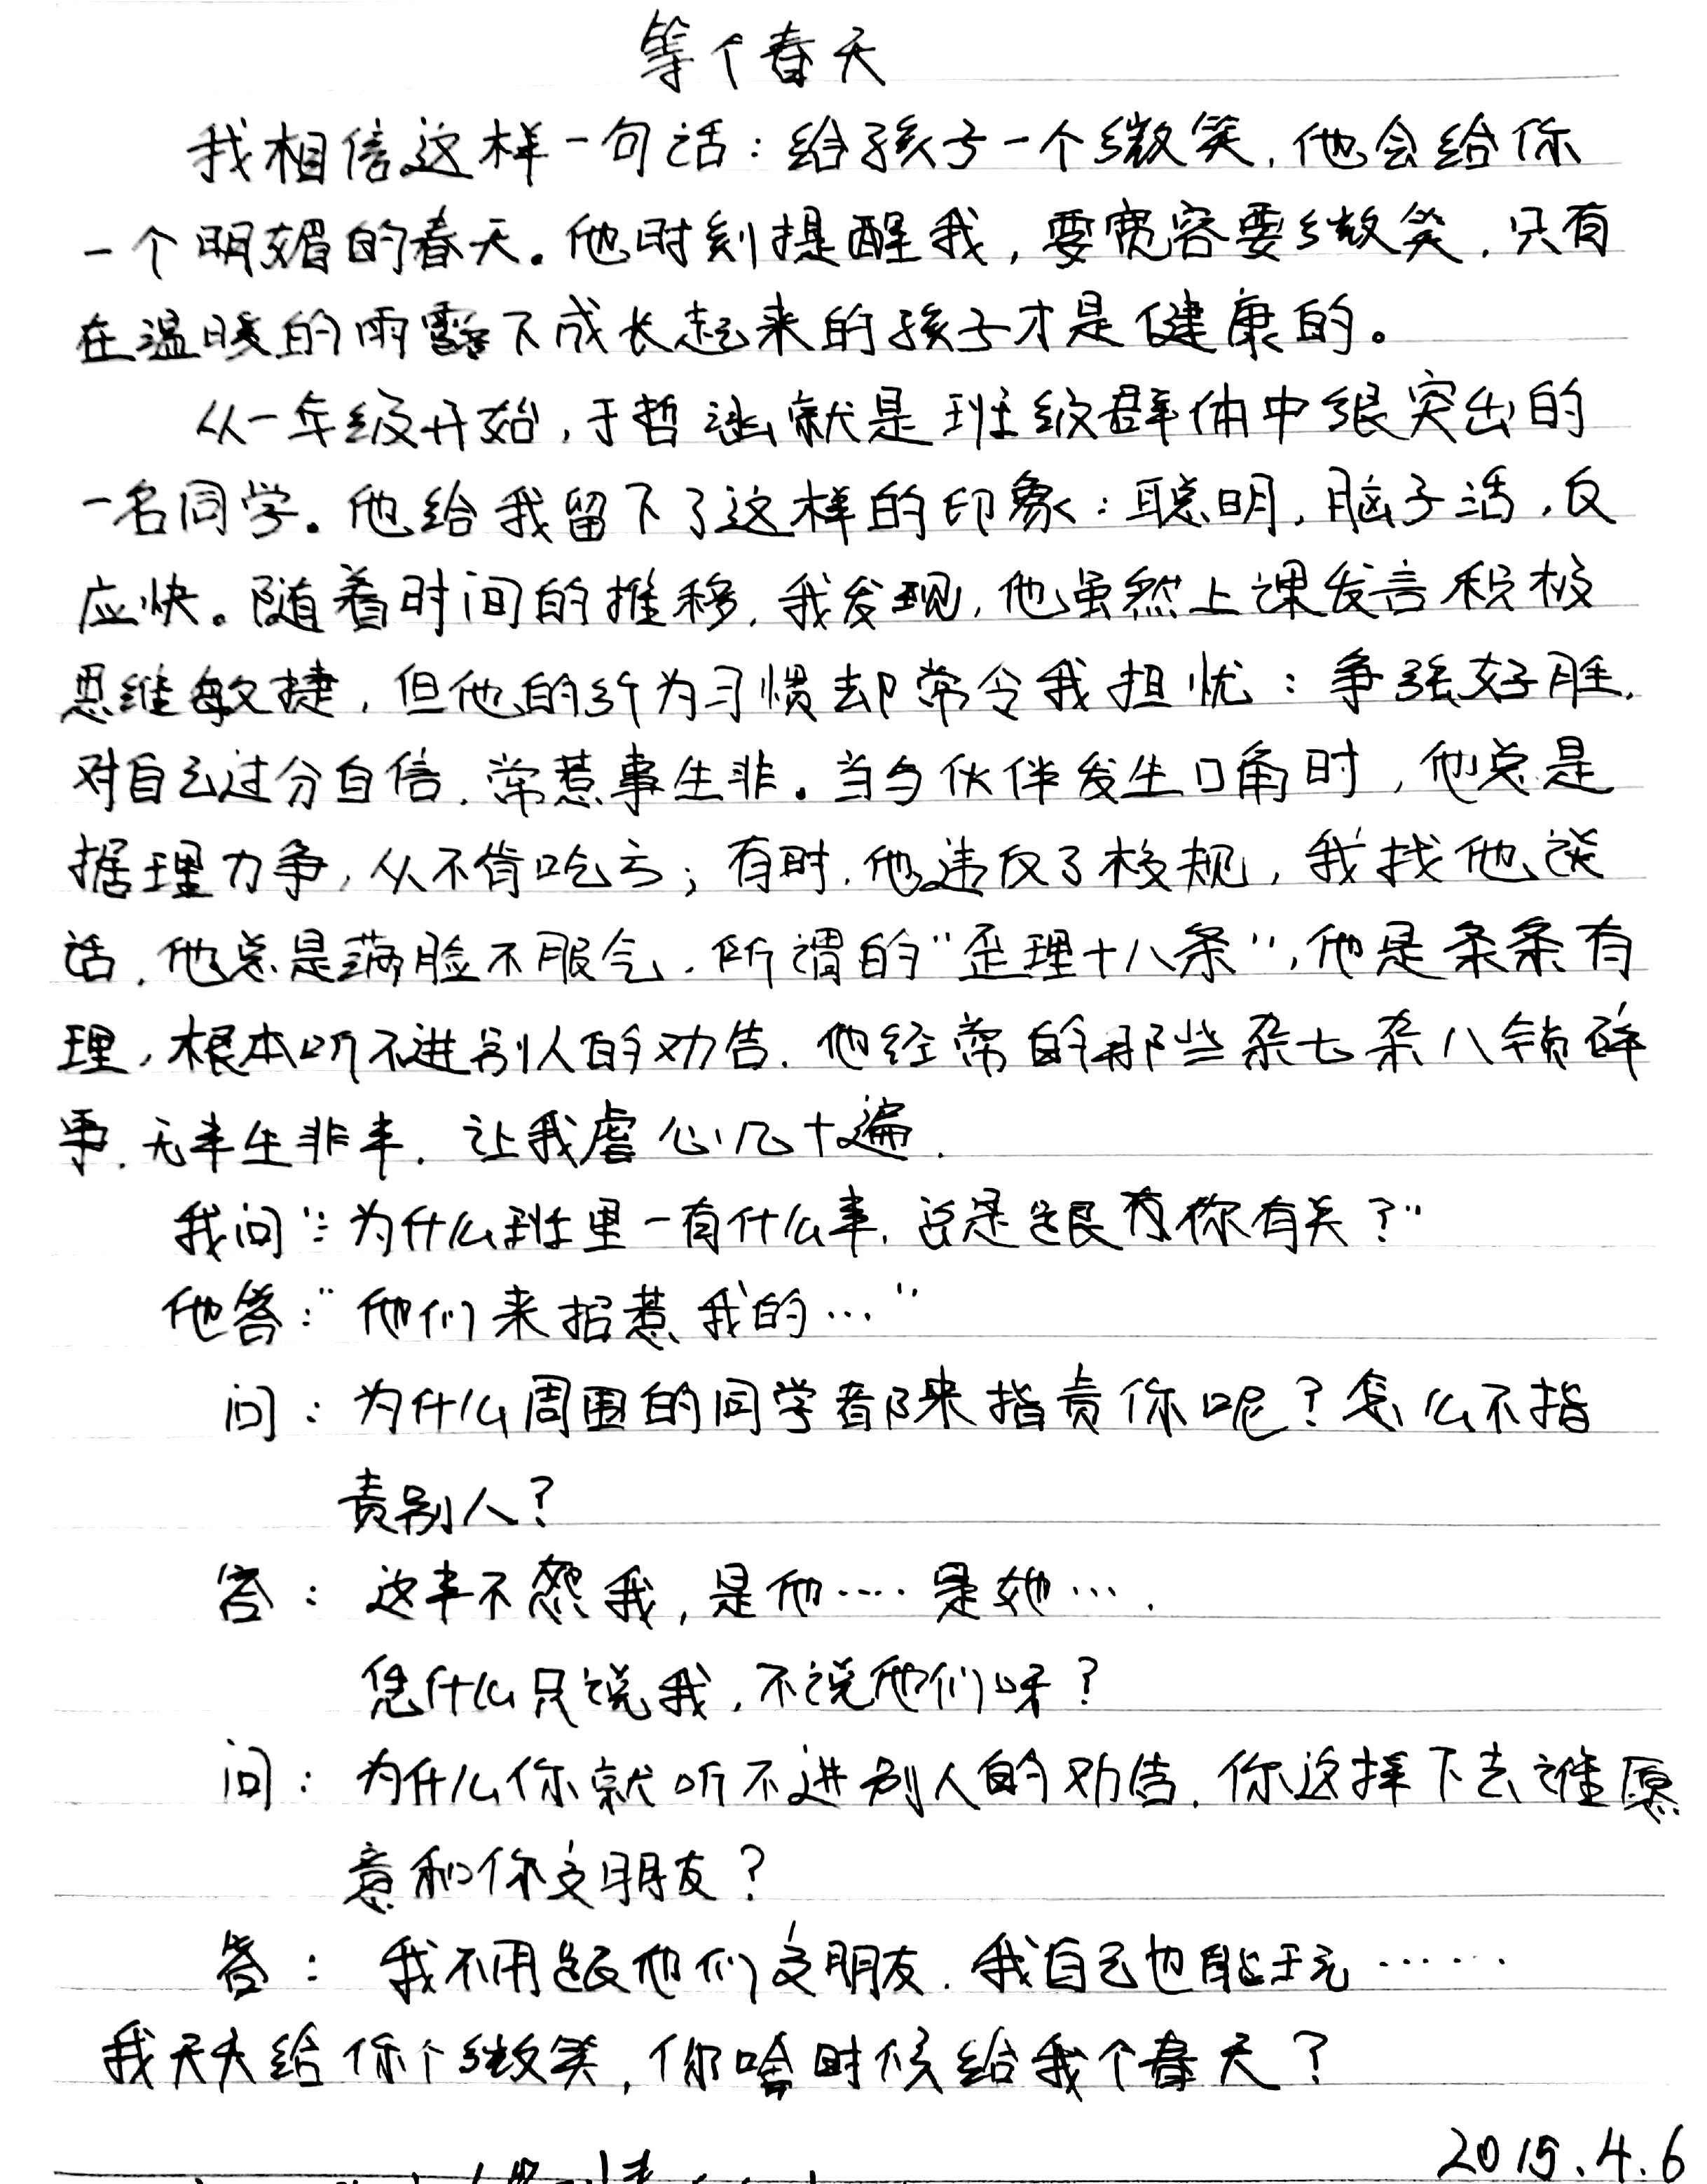 等个春天
我相信这样一句话：给孩子一个微笑，他会给你
一个明媚的春天。他时刻提醒我，要宽容要微笑，只有
在温暖的雨露下成长起来的孩子才是健康的。
从一年级开始，于哲涵就是班级群体中很突出的
一名同学。他给我留下了这样的印象：聪明，脑子活，反
应快。随着时间的推移，我发现，他虽然上课发言积极
思维敏捷，但他的行为习惯却常令我担忧：争强好胜，
对自己过分自信，常惹事生非。当与伙伴发生口角时，他总是
据理力争，从不肯吃亏；有时，他违反了校规，我找他谈
话，他总是满脸不服气，所谓的“歪理十八条”，他是条条有
理，根本听不进别人的劝告。他经常的那些杂七杂八锁碎
事，无事生非事，让我虐心几十遍。
我问“：为什么班里一有什么事，总是跟你有关？”
他答：“他们来招惹我的…”
问：为什么周围的同学都来指责你呢？怎么不指
责别人？
答：这事不怨我，是他…… 是她….
凭什么只说我，不说他们呀？
问：为什么你就听不进别人的劝告，你这样下去谁愿
意和你交朋友？
答：我不用跟他们交朋友，我自己也能玩……
我天天给你个微笑，你啥时候给我个春天？
2015.4.6